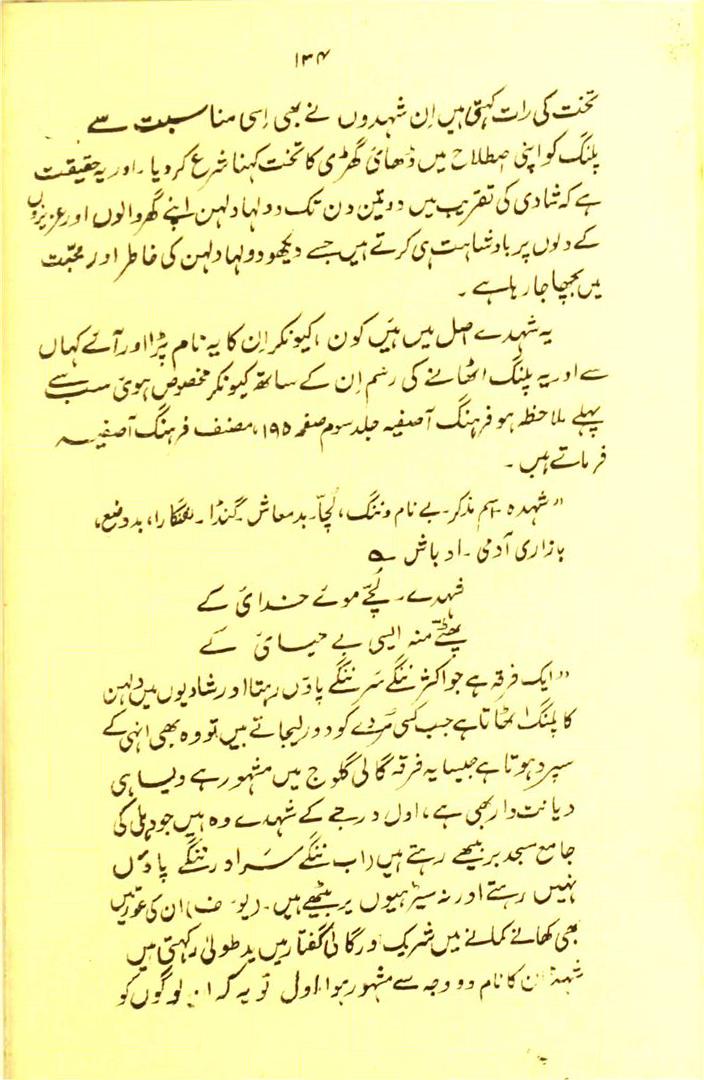 ۱۳۴
تخت کی رات کہتی ہیں اِن شہدوں نے بھی اِسی مناسبت سے
پلنگ کو اپنی اصطلاح میں ڈھائی گھڑی کا تخت کہنا شرع کر دیا۔ اور یہ حقیقت
ہے کہ شادی کی تقریب میں دو تین دن تک دولہا دلہن اپنے گھر والوں اور عزیزوں
کے دلوں پر بادشاہت ہی کرتے ہیں جسے دیکھو دولہا دلہن کی خاطر اور محبّت
میں بچھا جا رہا ہے ۔
یہ شہدے اصل میں ہیں کون ، کیونکر اِن کا یہ نام پڑا اور آئے کہاں
سے اور یہ پلنگ اٹھانے کی رسم اِن کے ساتھ کیونکر مخصوص ہوئی سب سے
پہلے ملاحظہ ہو فرہنگ آصفیہ جلد سوم صفحہ ۱۹۵، مصنف فرہنگ آصفیہ
فرماتے ہیں ۔
” شہدہ ۔ اسم مذکر ۔ بے نام و ننگ ، لُچّا ۔ بدمعاش ۔ گنڈا ۔ لقنگارا ، بد وضع ،
بازاری آدمی ۔ اوباش ؎
شہدے ۔ لُچّے موئے خدائی کے
پھٹے منہ ایسی بے حیائی کے
” ایک فرقہ ہے جو اکثر ننگے سر ننگے پاؤں رہتا اور شادیوں میں دلہن
کا پلنگ اٹھاتا ہے جب کسی مُردے کو دور لیجاتے ہیں تو وہ بھی انہی کے
سپرد ہوتا ہے جیسا یہ فرقہ گالی گلوج میں مشہور ہے ویسا ہی
دیانت دار بھی ہے ، اول درجے کے شہدے وہ ہیں جو دہلی کی
جامع مسجد پر بیٹھے رہتے ہیں (اب ننگے سر اور ننگے پاؤں
نہیں رہتے اور نہ سیڑھیوں پر بیٹھے ہیں ۔ ان کی عورتیں
بھی کھانے کمانے میں شریک اور گالی گفتار میں ید طولیٰ رکھتی ہیں
شہدوں کا نام دو وجہ سے مشہور ہوا اول تو یہ کہ ان لوگوں کو